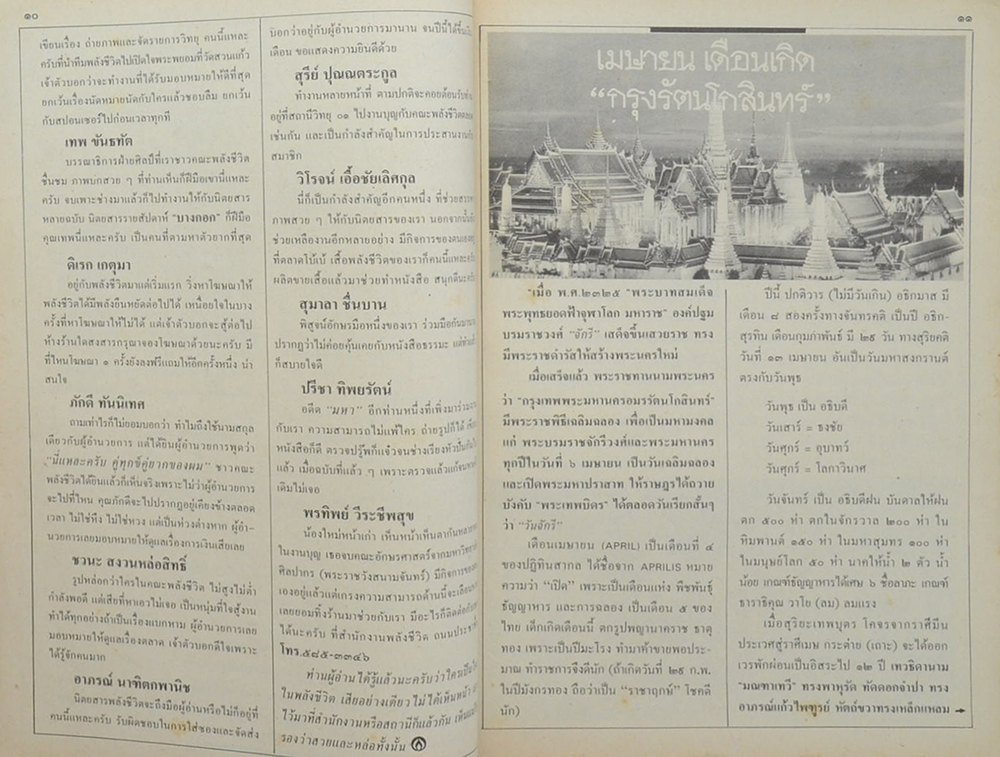 ๑๐
เขียนเรื่อง ถ่ายภาพและจัดรายการวิทยุ คนนี้แหละ
ครับที่นำทีมพลังชีวิตไปเปิดใจพระพยอมที่วัดสวนแก้ว
เจ้าตัวบอกว่าจะทำงานที่ได้รับมอบหมายให้ดีที่สุด
ยกเว้นเรื่องนัดหมายนัดกับใครแล้วชอบลืม ยกเว้น
กับสปอนเซอร์ไปก่อนเวลาทุกที
เทพ ขันธทัต
บรรณาธิการฝ่ายศิลป์ที่เราชาวคณะพลังชีวิต
ชื่นชม ภาพปกสวย ๆ ที่ท่านเห็นก็ฝีมือเขานี่แหละ
ครับ จบเพาะช่างมาแล้วก็ไปทำงานให้กับนิตยสาร
หลายฉบับ นิตยสารรายสัปดาห์ "บางกอก" ก็ฝีมือ
คุณเทพนี่แหละครับ เป็นคนที่ตามหาตัวยากที่สุด
ดิเรก เกตุมา
อยู่กับพลังชีวิตมาแต่เริ่มแรก วิ่งหาโฆษณาให้
พลังชีวิตได้มีพลังยืนหยัดต่อไปได้ เหนื่อยใจในบาง
ครั้งที่หาโฆษณาให้ไม่ได้ แต่เจ้าตัวบอกจะสู้ต่อไป
ห้างร้านใดสงสารกรุณาจองโฆษณาด้วยนะครับ มี
ที่ไหนโฆษณา ๑ ครั้งยังลงฟรีแถมให้อีกครึ่งหนึ่ง น่า
สนใจ
ภักดี ทันนิเทศ
ถามเท่าไรก็ไม่ยอมบอกว่า ทำไมถึงใช้นามสกุล
เดียวกับผู้อำนวยการ แต่ได้ยินผู้อำนวยการพูดว่า
"นี่แหละครับ คู่ทุกข์คู่ยากของผม" ชาวคณะ
พลังชีวิตได้ยินแล้วก็เห็นจริงเพราะไม่ว่าผู้อำนวยการ
จะไปที่ไหน คุณภักดีจะไปปรากฏอยู่เคียงข้างตลอด
เวลา ไม่ใช่หึง ไม่ใช่หวง แต่เป็นห่วงต่างหาก ผู้อำ-
นวยการเลยมอบหมายให้ดูแลเรื่องการเงินเสียเลย
ชวนะ สงวนหล่อสิทธิ์
รูปหล่อกว่าใครในคณะพลังชีวิต ไม่สูงไม่ต่ำ
กำลังพอดี แต่เสียที่หาเอวไม่เจอ เป็นหนุ่มที่ใจสู้งาน
ทำได้ทุกอย่างถ้าเป็นเรื่องแบกหาม ผู้อำนวยการเลย
มอบหมายให้ดูแลเรื่องตลาด เจ้าตัวบอกดีใจเพราะ
ได้รู้จักคนมาก
อาภรณ์ นาฑิตกพานิช
นิตยสารพลังชีวิตจะถึงมือผู้อ่านหรือไม่ก็อยู่ที่
คนนี้แหละครับ รับผิดชอบในการใส่ซองและจัดส่ง
บิอกว่าอยู่กับผู้อำนวยการมานาน จนปีนี้ได้ขึ้น
เดือน ขอแสดงความยินดีด้วย
สุรีย์ ปุณณตระกูล
ทำงานหลายหน้าที่ ตามปกติจะคอยต้อนรับ
อยู่ที่สถานีวิทยุ ๐๑ ไปงานบุญกับคณะพลังชีวิต
เช่นกัน และเป็นกำลังสำคัญในการประสานงาน
สมาชิก
วิโรจน์ เอื้อชัยเลิศกุล
นี่ก็เป็นกำลังสำคัญอีกคนหนึ่ง ที่ช่วย
ภาพสวย ๆ ให้กับนิตยสารของเรา นอกจากนั้น
ช่วยเหลืองานอีกหลายอย่าง มีกิจการของตนเอง
ที่ตลาดโบ้เบ้ เสื้อพลังชีวิตของเราก็คนนี้แหละ
ผลิตขายเสื้อแล้วมาช่วยทำหนังสือ สนุกดี
สุมาลา ชื่นบาน
พิสูจน์อักษรมือหนึ่งของเรา ร่วมมือกัน
ปรากฏว่าไม่ค่อยคุ้นเคยกับหนังสือธรรมะ แต่
ก็สบายใจดี
ปรีชา ทิพยรัตน์
อดีต "มหา" อีกท่านหนึ่งที่เพิ่งมาร่วม
กับเรา ความสามารถไม่แพ้ใคร ถ่ายรูปก็ได้
หนังสือก็ดี ตรวจปรู๊ฟก็แจ๋วจนช่างเรียง
แล้ว เมื่อฉบับที่แล้ว ๆ เพราะตรวจแล้วแก้
เดิมไม่เจอ
พรทิพย์ วีระชีพสุข
น้องใหม่หน้าเก่า เห็นหน้าเห็นตากัน
ในงานบุญ เธอจบคณะอักษรศาสตร์จากมหาวิทยาลัย
ศิลปากร (พระราชวังสนามจันทร์) มีกิจการของ
เองอยู่แล้วแต่เกรงความสามารถด้านนี้จะ
เลยยอมทิ้งร้านมาช่วยกับเรา มีอะไรก็ติดต่อ
ได้นะครับ ที่สำนักงานพลังชีวิต ถนน
โทร.๕๘๕-๓๓๔๖
ท่านผู้อ่านได้รู้แล้วนะครับว่าใครเป็น
ในพลังชีวิต เสียอย่างเดียว ไม่ได้เห็นหน้า
ไว้มาที่สำนักงานหรือสถานีก็แล้วกัน
รองว่าสวยและหล่อทั้งนั้น
๑๑
เมษายน เดือนเกิด
"กรุงรัตนโกสินทร์"
"เมื่อ พ.ศ.๒๓๒๕ "พระบาทสมเด็จ
พระพุทธยอดฟ้าจุฬาโลก มหาราช" องค์ปฐม
บรมราชวงศ์ "จักรี" เสด็จขึ้นเสวยราช ทรง
มีพระราชดำรัสให้สร้างพระนครใหม่
เมื่อเสร็จแล้ว พระราชทานนามพระนคร
ว่า "กรุงเทพพระมหานครอมรรัตนโกสินทร์"
มีพระราชพิธีเฉลิมฉลอง เพื่อเป็นมหามงคล
แก่ พระบรมราชจักรีวงศ์และพระมหานคร
ทุกปีในวันที่ ๖ เมษายน เป็นวันเฉลิมฉลอง
และเปิดพระมหาปราสาท ให้ราษฎรได้ถวาย
บังคับ "พระเทพบิดร" ได้ตลอดวันเรียกสั้นๆ
ว่า "วันจักรี"
เดือนเมษายน (APRIL) เป็นเดือนที่ ๔
ของปฏิทินสากล ได้ชื่อจาก APRILIS หมาย
ความว่า "เปิด" เพราะเป็นเดือนแห่ง พืชพันธุ์
ธัญญาหาร และการฉลอง เป็นเดือน ๕ ของ
ไทย เด็กเกิดเดือนนี้ ตกรูปพญานาคราช ธาตุ
ทอง เพราะเป็นปีมะโรง ทำมาค้าขายพอประ-
มาณ ทำราชการจึงดีนัก (ถ้าเกิดวันที่ ๒๙ ก.พ.
ในปีมังกรทอง ถือว่าเป็น "ราชาฤกษ์" โชคดี
นัก)
ปีนี้ ปกติวาร (ไม่มีวันเกิน) อธิกมาส มี
เดือน ๘ สองครั้งทางจันทรคติ เป็นปี อธิก-
สุรทิน เดือนกุมภาพันธ์ มี ๒๙ วัน ทางสุริยคติ
วันที่ ๑๓ เมษายน อันเป็นวันมหาสงกรานต์
ตรงกับวันพุธ
วันพุธ เป็น อธิบดี
วันเสาร์ = ธงชัย
วันศุกร์ = อุบาทว์
วันศุกร์ = โลกาวินาศ
วันจันทร์ เป็น อธิบดีฝน บันดาลให้ฝน
ตก ๕๐๐ ห่า ตกในจักรวาล ๒๐๐ ห่า ใน
หิมพานต์ ๑๕๐ ห่า ในมหาสมุทร ๑๐๐ ห่า
ในมนุษย์โลก ๕๐ ห่า นาคให้น้ำ ๒ ตัว น้ำ
น้อย เกณฑ์ธัญญาหารได้เศษ ๖ ชื่อลาภะ เกณฑ์
ธาราธิคุณ วาโย (ลม) ลมแรง
เมื่อสุริยะเทพบุตร โคจรจากราศีมีน
ประเวศสู่ราศีเมษ กระต่าย (เถาะ) จะได้ออก
เวรพักผ่อนเป็นอิสระไป ๑๒ ปี เทวธิดานาม
"มณฑาเทวี" ทรงพาหุรัด ทัดดอกจำปา ทรง
อาภรณ์แก้วไพฑูรย์ หัตถ์ขวาทรงเหล็กแหลม